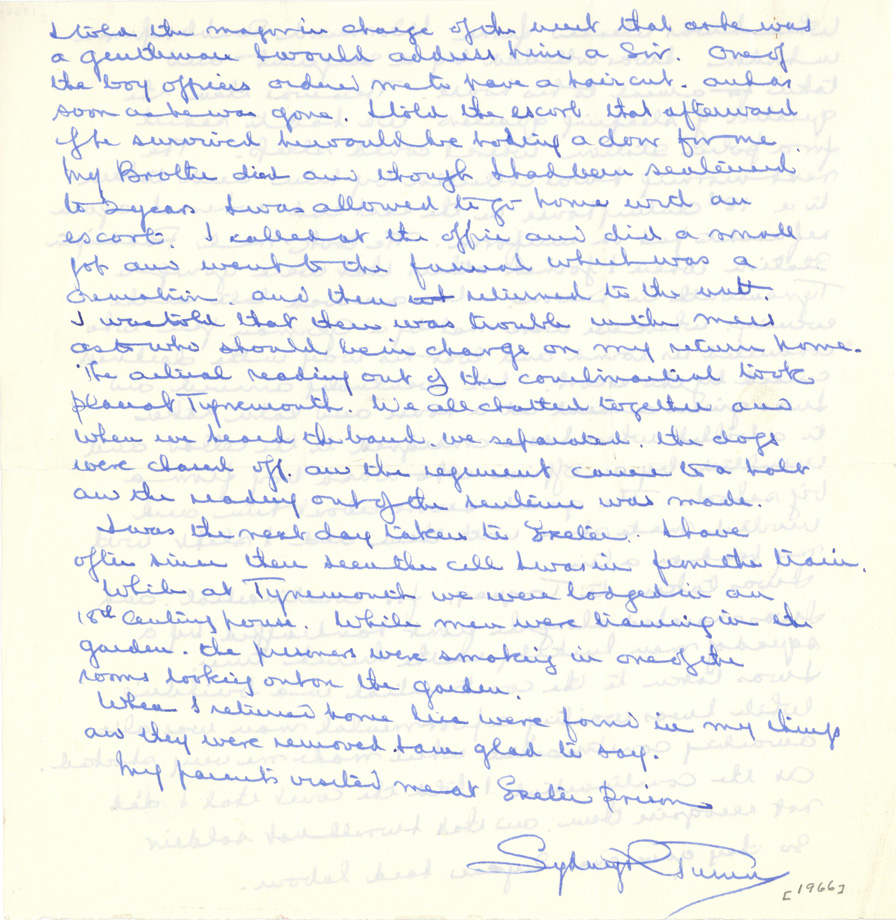 I told the major in charge of the unit that as he was
a gentleman I would address him a Sir. One of
the boy officers ordered me to have a haircut. and as
soon as he was gone. I told the escort that afterward
if he survived he would be holding a door for me.
My Brother died and though I had been sentenced
to 2 years I was allowed to go home with an
escort. I called at the office and did a small
job and went to the funeral which was a
cremation. and then returned to the unit.
I was told that there was trouble in the mess
as to who should be in charge on my return home.
The actual reading out of the courtmartial took
place at Tynemouth. We all chatted together and
when we heard the band. we separated. the dogs
were chased off. and the regiment came to a halt
and the reading out of the sentence was made.
I was the next day taken to Exeter. I have
often since then seen the cell I was in from the train.
While at Tynemouth we were lodged in an
18th Century house. While men were training in the
garden. the prisoners were smoking in one of the
rooms looking onto the garden.
When I returned home lice were found in my things
and they were removed I am glad to say.
My parents visited me at Exeter prison
Sydney R Turner
[1966]